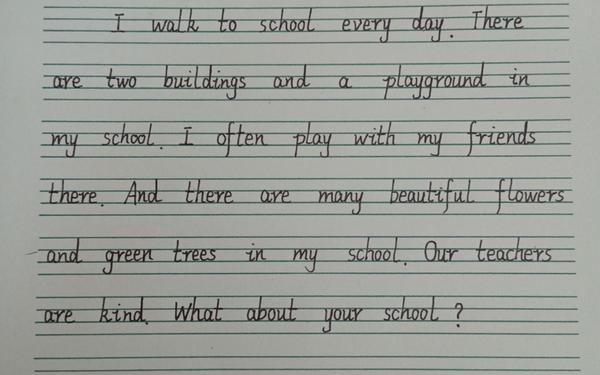 I walk to school every day. There
are two buildings and a playground in
my school. I often play with my friends
there. And there are many beautiful flowers
and green trees in my school. Our teachers
are kind. What about your school?